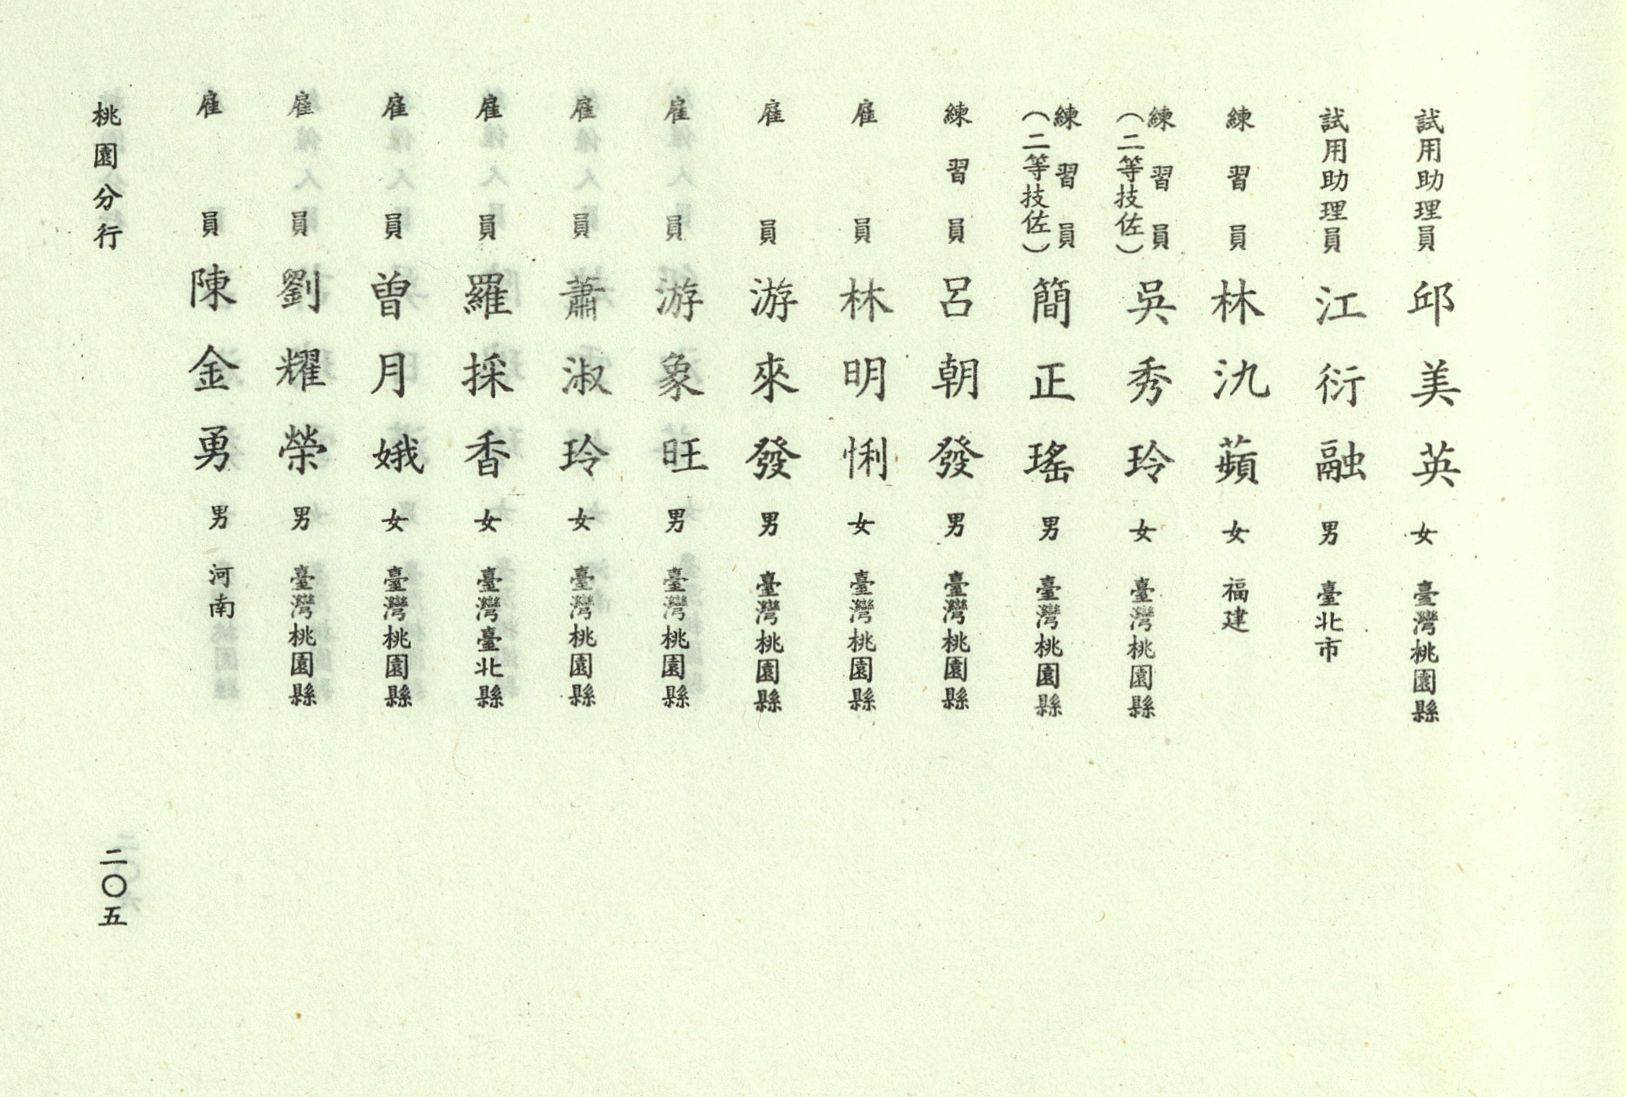 試用助理員 邱美英 女 臺灣桃園縣
試用助理員 江衍融 男 臺北市
練習員 林氿蘋 女 福建
練習員(二等技佐) 吳秀玲 女 臺灣桃園縣
練習員(二等技佐) 簡正瑤 男 臺灣桃園縣
練習員 呂朝發 男 臺灣桃園縣
雇員 林明悧 女 臺灣桃園縣
雇員 游來發 男 臺灣桃園縣
雇員 游象旺 男 臺灣桃園縣
雇員 蕭淑玲 女 臺灣桃園縣
雇員 羅採香 女 臺灣臺北縣
雇員 曾月娥 女 臺灣桃園縣
雇員 劉耀榮 男 臺灣桃園縣
雇員 陳金勇 男 河南
桃園分行 二〇五